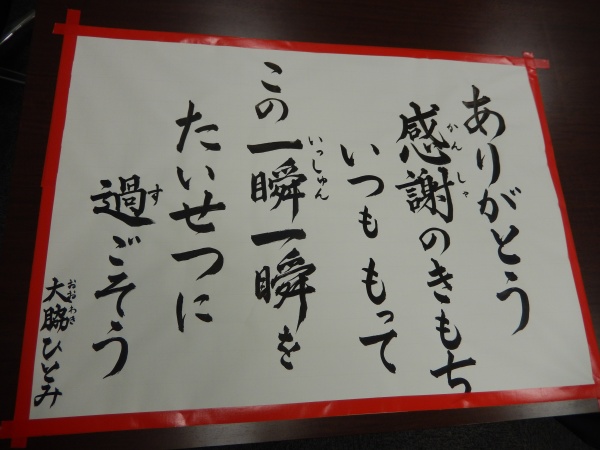 ありがとう
感謝のきもち
かんしゃ
いつももって
この一瞬一瞬を
いっしゅん
たいせつに
過ごそう
す
大脇ひとみ
おおわき